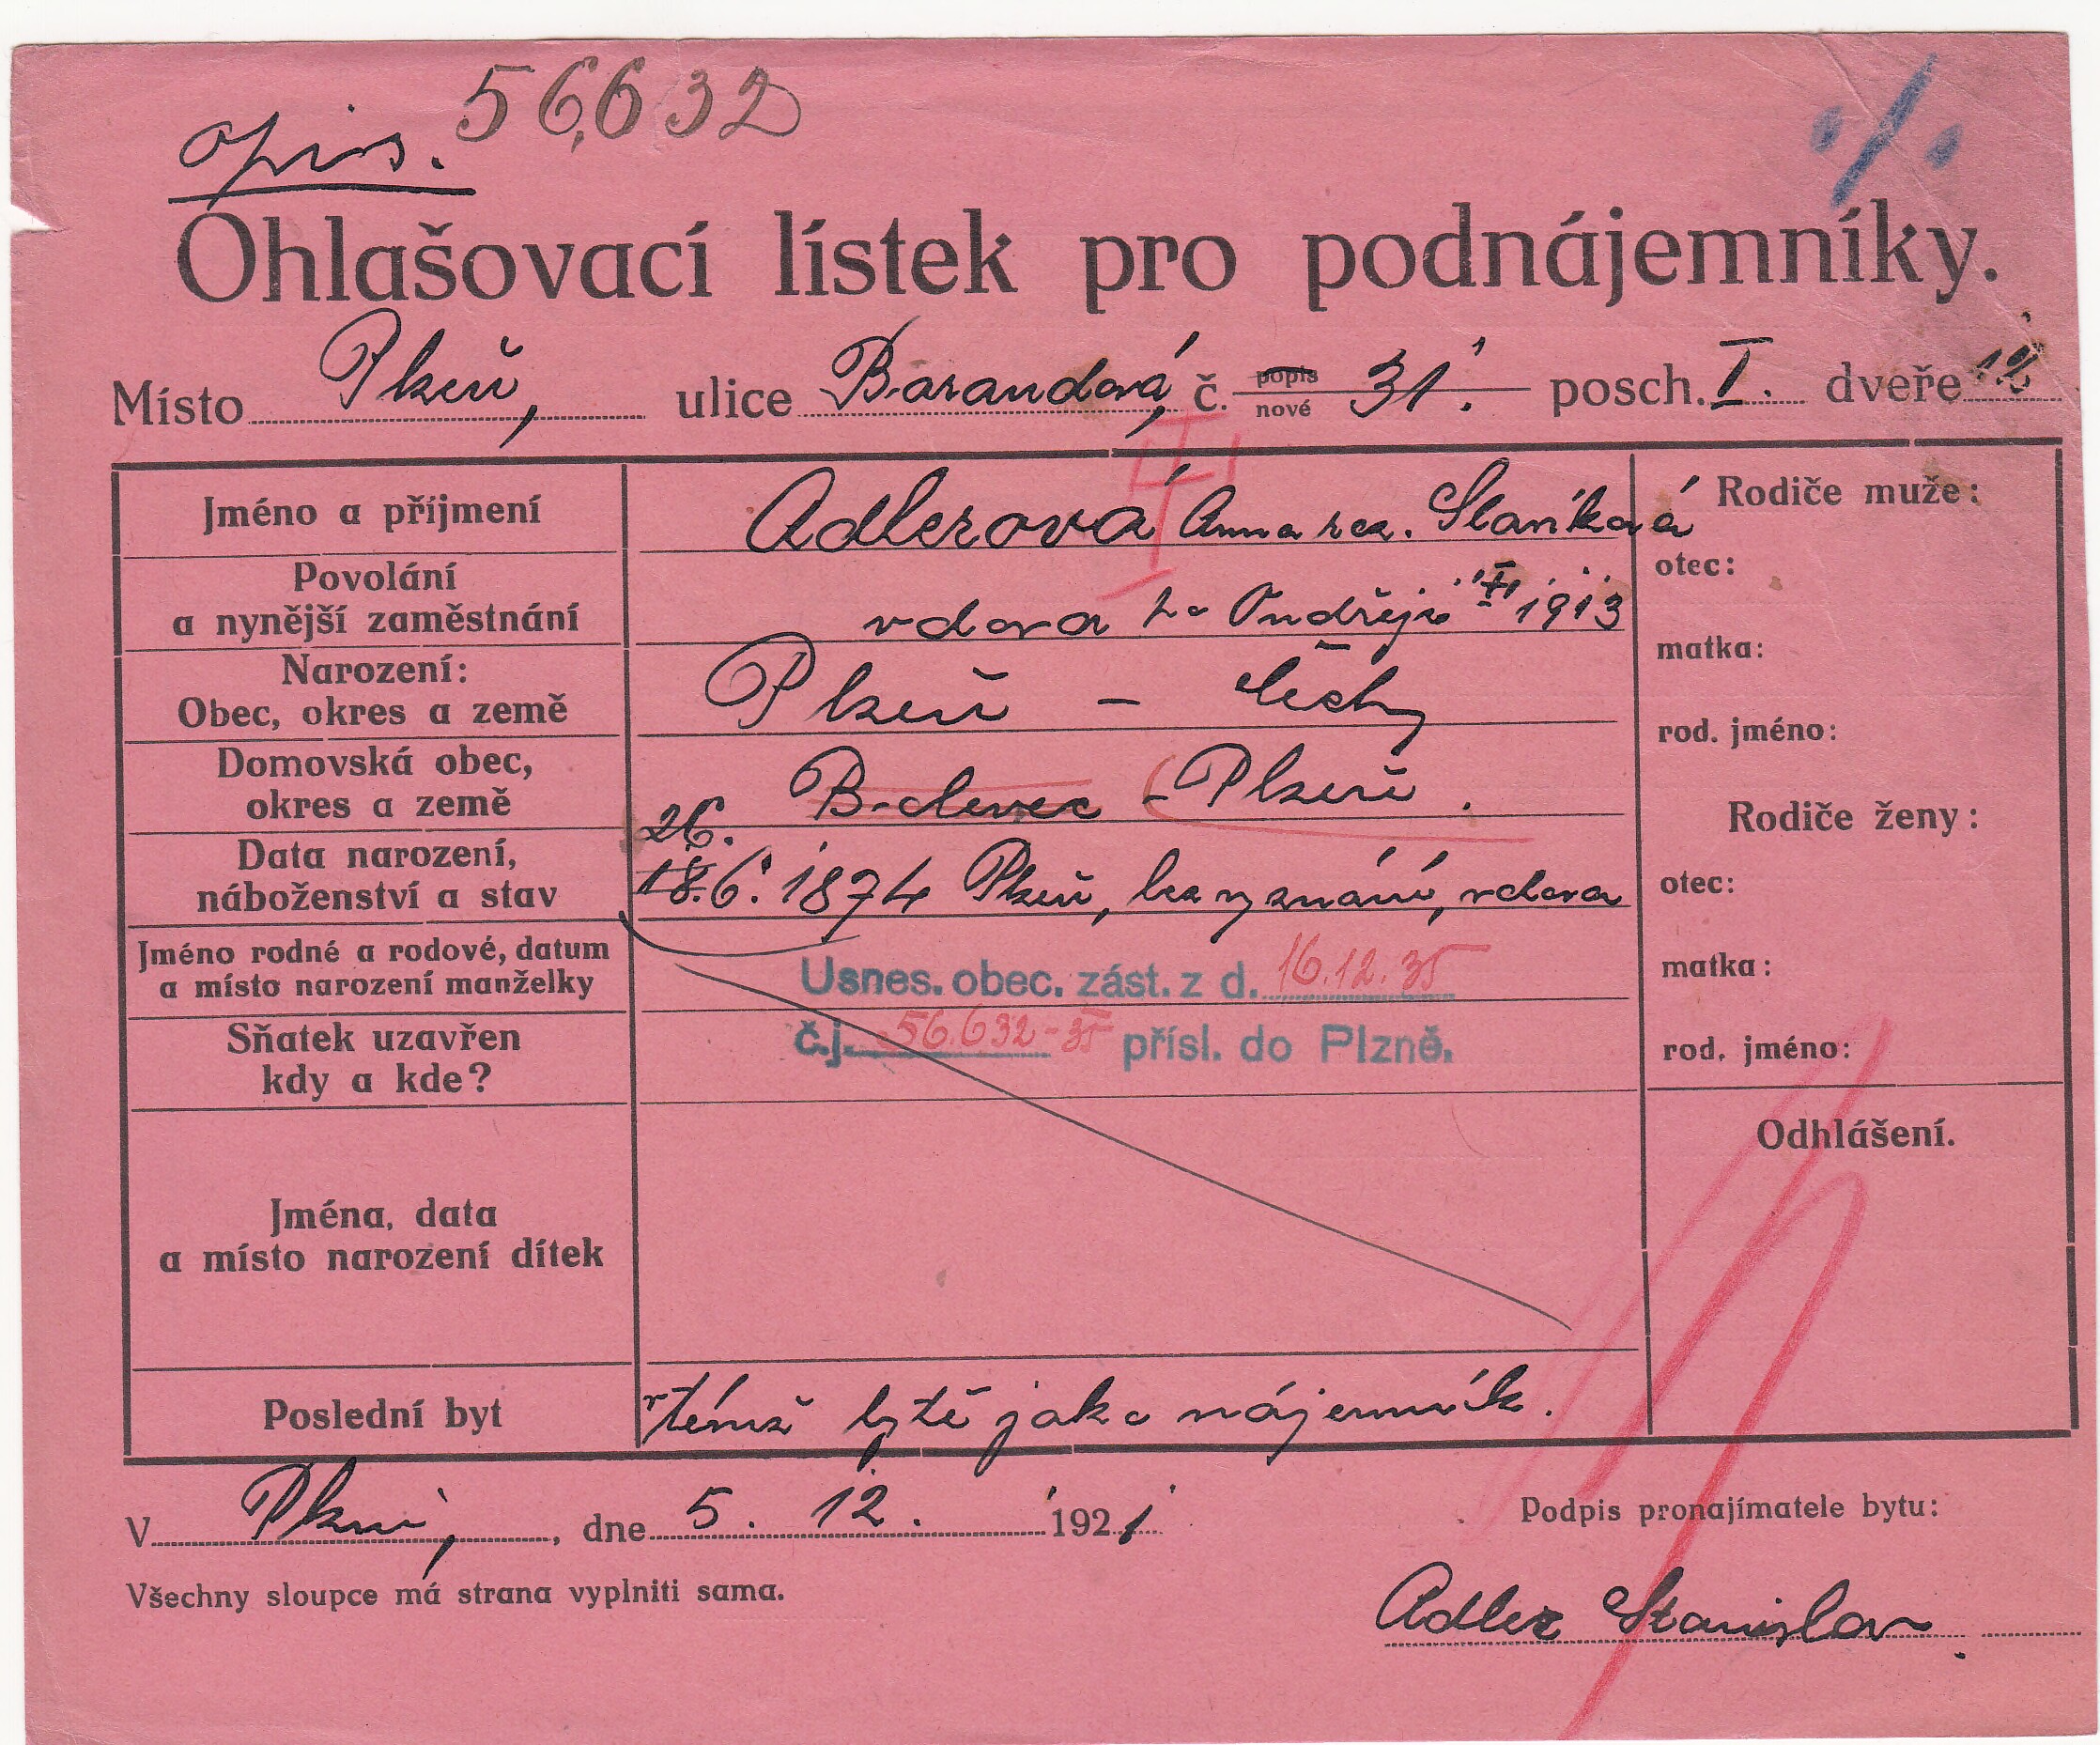 opis. 56,632
Ohlašovací lístek pro podnájemníky.
Místo Plzeň, ulice Barandová, č. popis nové 31. posch. I. dveře
Jméno a příjmení Adlerová Anna roz. Slaníková
Povolání
a nynější zaměstnání vdova po Ondřeji 1913
Narození:
Obec, okres a země Plzeň – Čechy
Domovská obec,
okres a země Bolevec – Plzeň.
26.
Data narození,
náboženství a stav 18. 6. 1874 Plzeň, bez vyznání, vdova
Jméno rodné a rodové, datum
a místo narození manželky
Usnes. obec. zást. z d. 16.12.35
Sňatek uzavřen
kdy a kde?
č.j. 56.632-35 přísl. do Plzně.
Jména, data
a místo narození dítek
Poslední byt v témž bytě jako nájemník.
Rodiče muže:
otec:
matka:
rod. jméno:
Rodiče ženy:
otec:
matka:
rod. jméno:
Odhlášení.
V Plzni, , dne 5. 12. 1921
Podpis pronajímatele bytu:
Všechny sloupce má strana vyplniti sama.
Adler Stanislav.